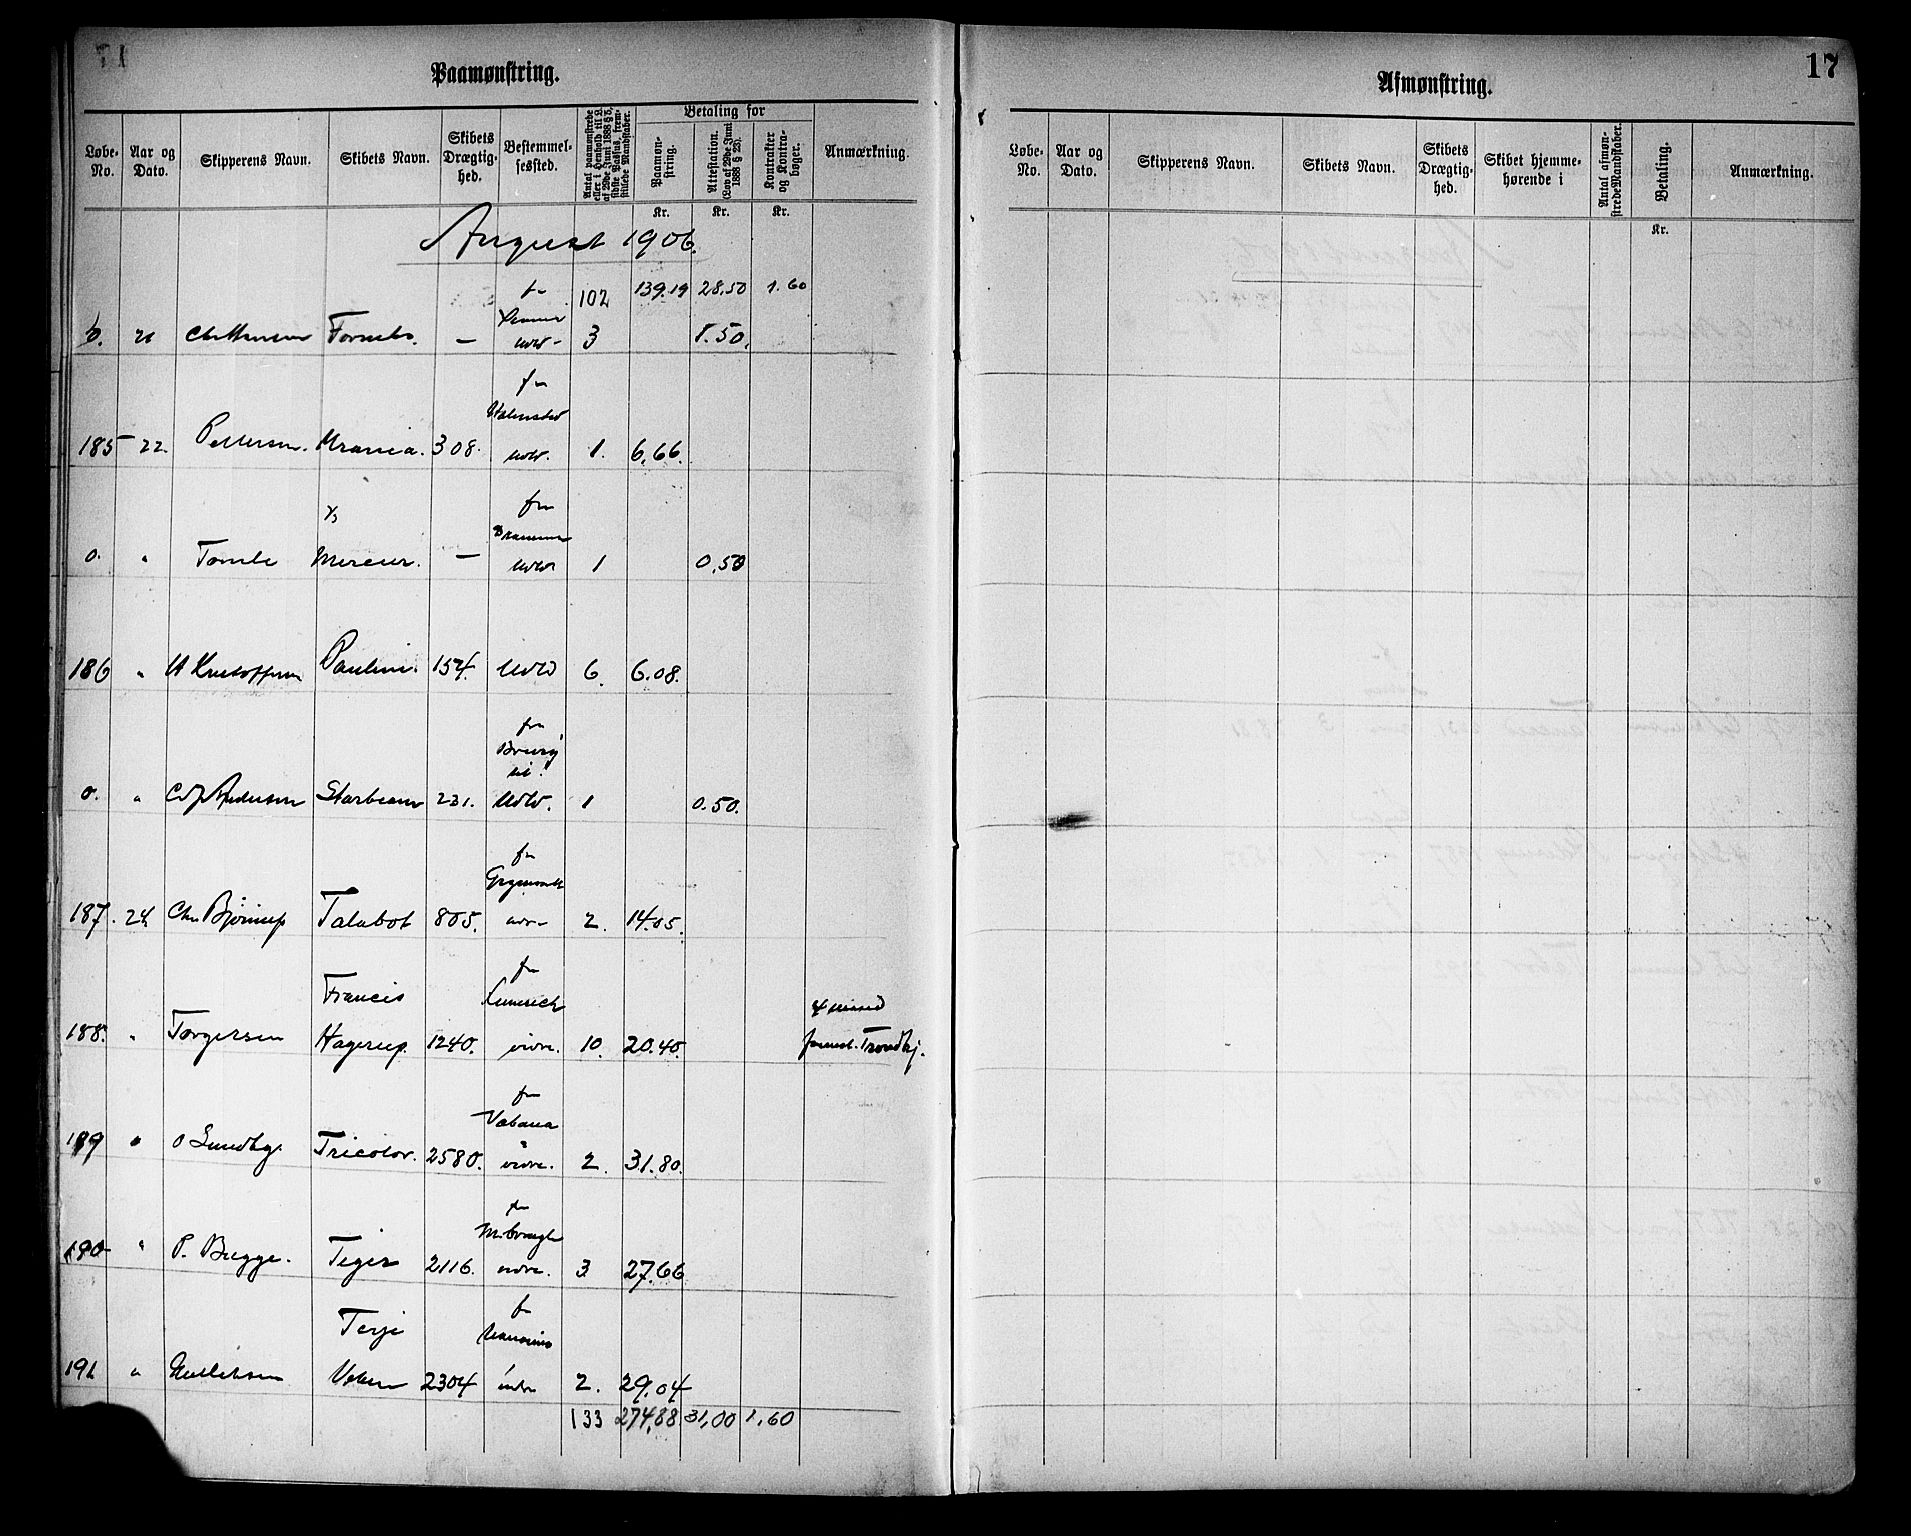 Paamønstring.
Løbe-No. Aar og Dato. Skipperens Navn. Skibets Navn. Skibets Drægtighed. Bestemmelsessted. Antal paamønstrede eller i Henhold til L. af 29de Juni 1888 § 5, sidste Passus, fremstillede Mandskaber. Betaling for Paamønstring. Attestation. (Lov af 29de Juni 1888 § 23). Kontrakter og Kontrabøger. Anmærkning.
Kr. Kr. Kr.
August 1906.
102 139.19 28.50 1.60
0. 21 Chr Hansen Fornebo. — 3 1.50.
fra Halmstad
185 22. Pettersen. Urania. 308. udld. 1. 6.66.
fra
0. " Tomle Mercur. — udld 1 0.50
186 " Kristoffersen Paulini. 154. Udld 6. 6.08.
fra
til
0. " Andersen Starbeam 231. Udld. 1 0.50.
fra
187. 24 Chr Bjørnup Talabot 805. 2. 14.05.
Francis fra Limerick
188. " Torgersen Hagerup. 1240. vidre. 10. 20.40. Trondhj.
fra
189 " O Lundby. Tricolor. 2580. vidre. 2. 31.80.
fra
190 " P. Bugge. Tiger 2116. vidre. 3 27.66
Terje fra
191 " Vigen 2304 2. 29.04
133 274,88 31,00 1.60
Afmønstring.
17
Løbe-No. Aar og Dato. Skipperens Navn. Skibets Navn. Skibets Drægtighed. Skibet hjemmehørende i Antal afmønstrede Mandskaber. Betaling. Anmærkning.
Kr.